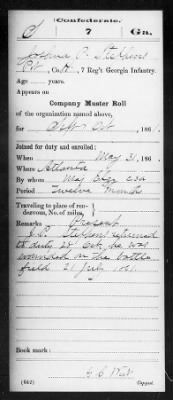 Confederate.
S 7 Ga.
Joshua P. Stephens
Pvt, Co. K, 7 Reg't Georgia Infantry.
Age years.
Appears on
Company Muster Roll
of the organization named above,
for Sept & Oct, 1861.
Joined for duty and enrolled:
When May 31, 1861.
Where Atlanta
By whom Maj
Period Twelve Months
Traveling to place of ren-
dezvous, No. of miles,
Remarks: Present
J.P. Stephens returned
to duty 25 Oct. he was
wounded on the battle
field 21 July 1861.
Book mark:
(642) Copyist.